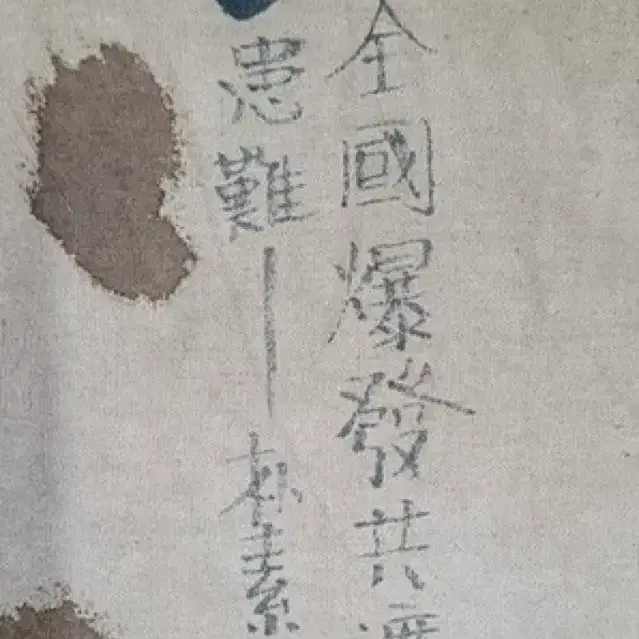 全國爆發共
患難—素